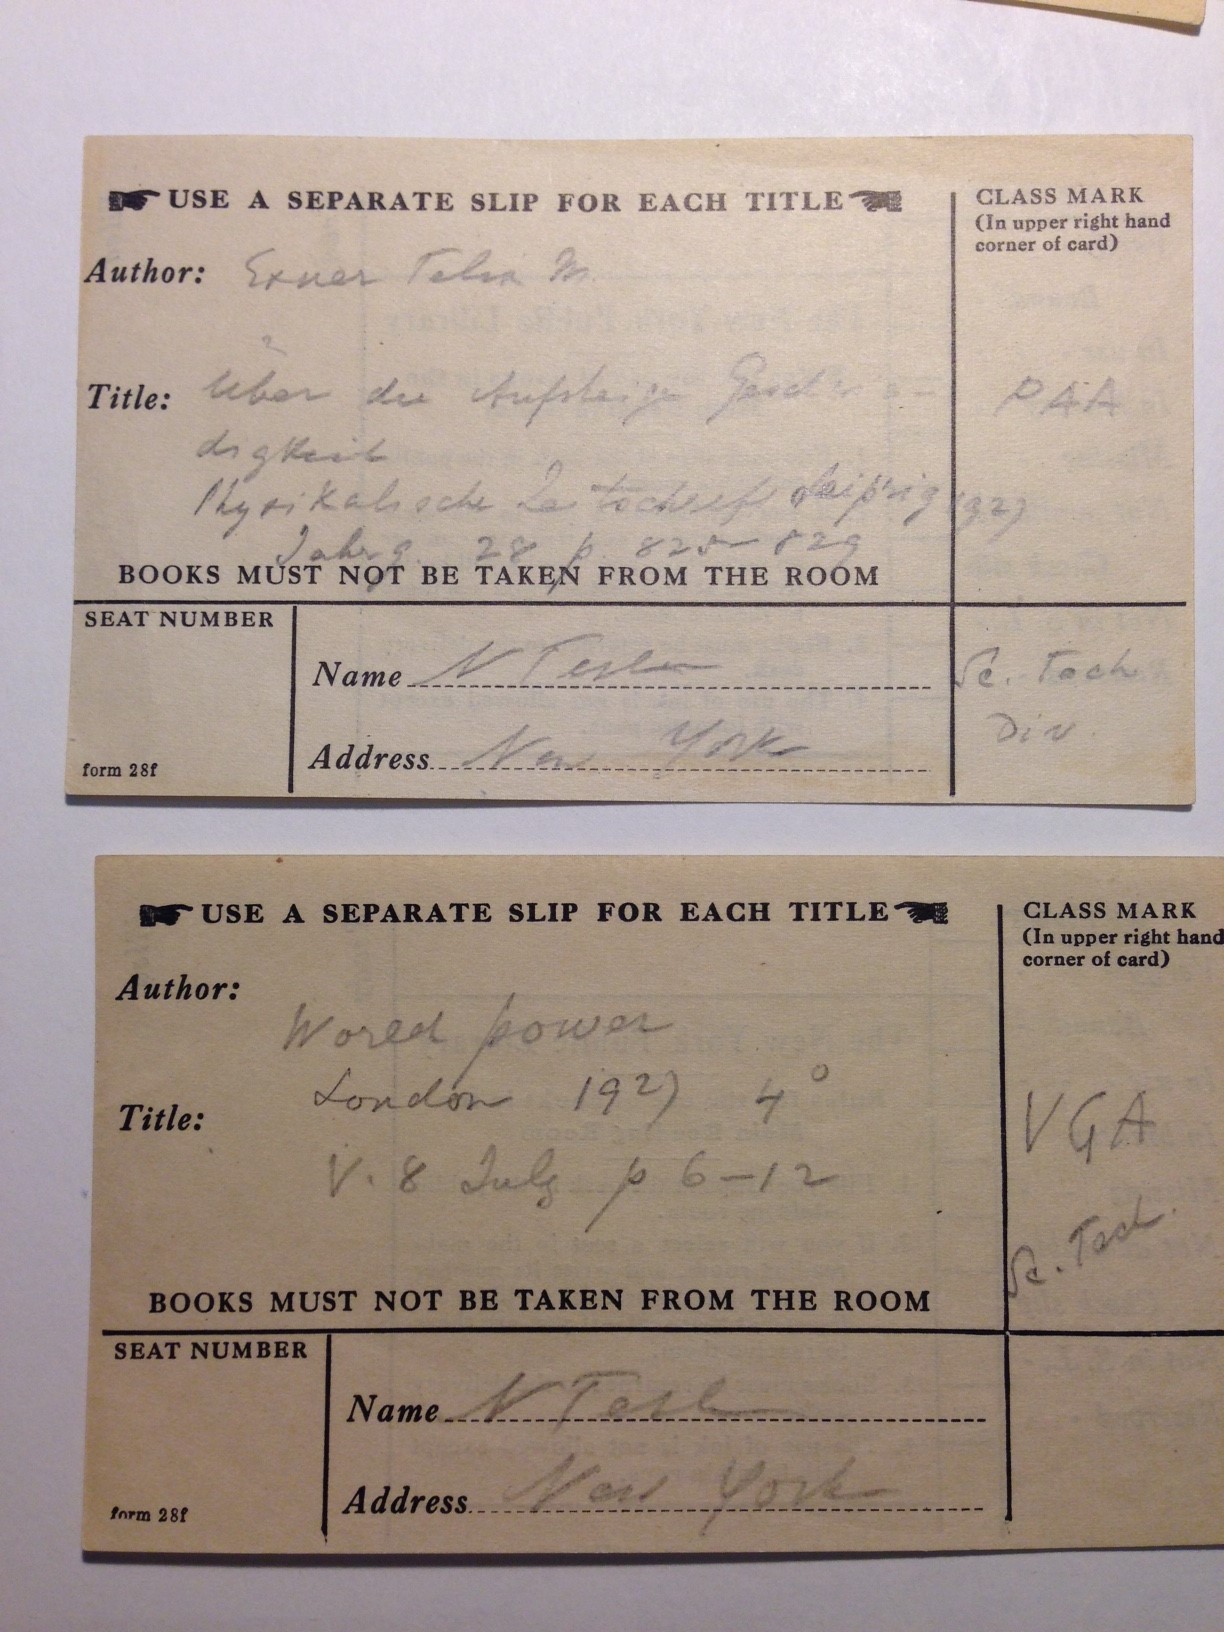 USE A SEPARATE SLIP FOR EACH TITLE
CLASS MARK
(In upper right hand
corner of card)
Author: Exner Felix M.
Title: Über die Aufsteige Geschwin-
digkeit
PAA
Physikalische Zeitschrift Leipzig 1927
Jahrg. 28 p. 825-829
BOOKS MUST NOT BE TAKEN FROM THE ROOM
SEAT NUMBER
Name N Tesla
Sc. Tech
Div.
Address New York
form 28f
USE A SEPARATE SLIP FOR EACH TITLE
CLASS MARK
(In upper right hand
corner of card)
Author:
World power
Title:
London 1927 4°
V. 8 July p 6-12
VGA
Sc. Tech.
BOOKS MUST NOT BE TAKEN FROM THE ROOM
SEAT NUMBER
Name N Tesla
Address New York
form 28f